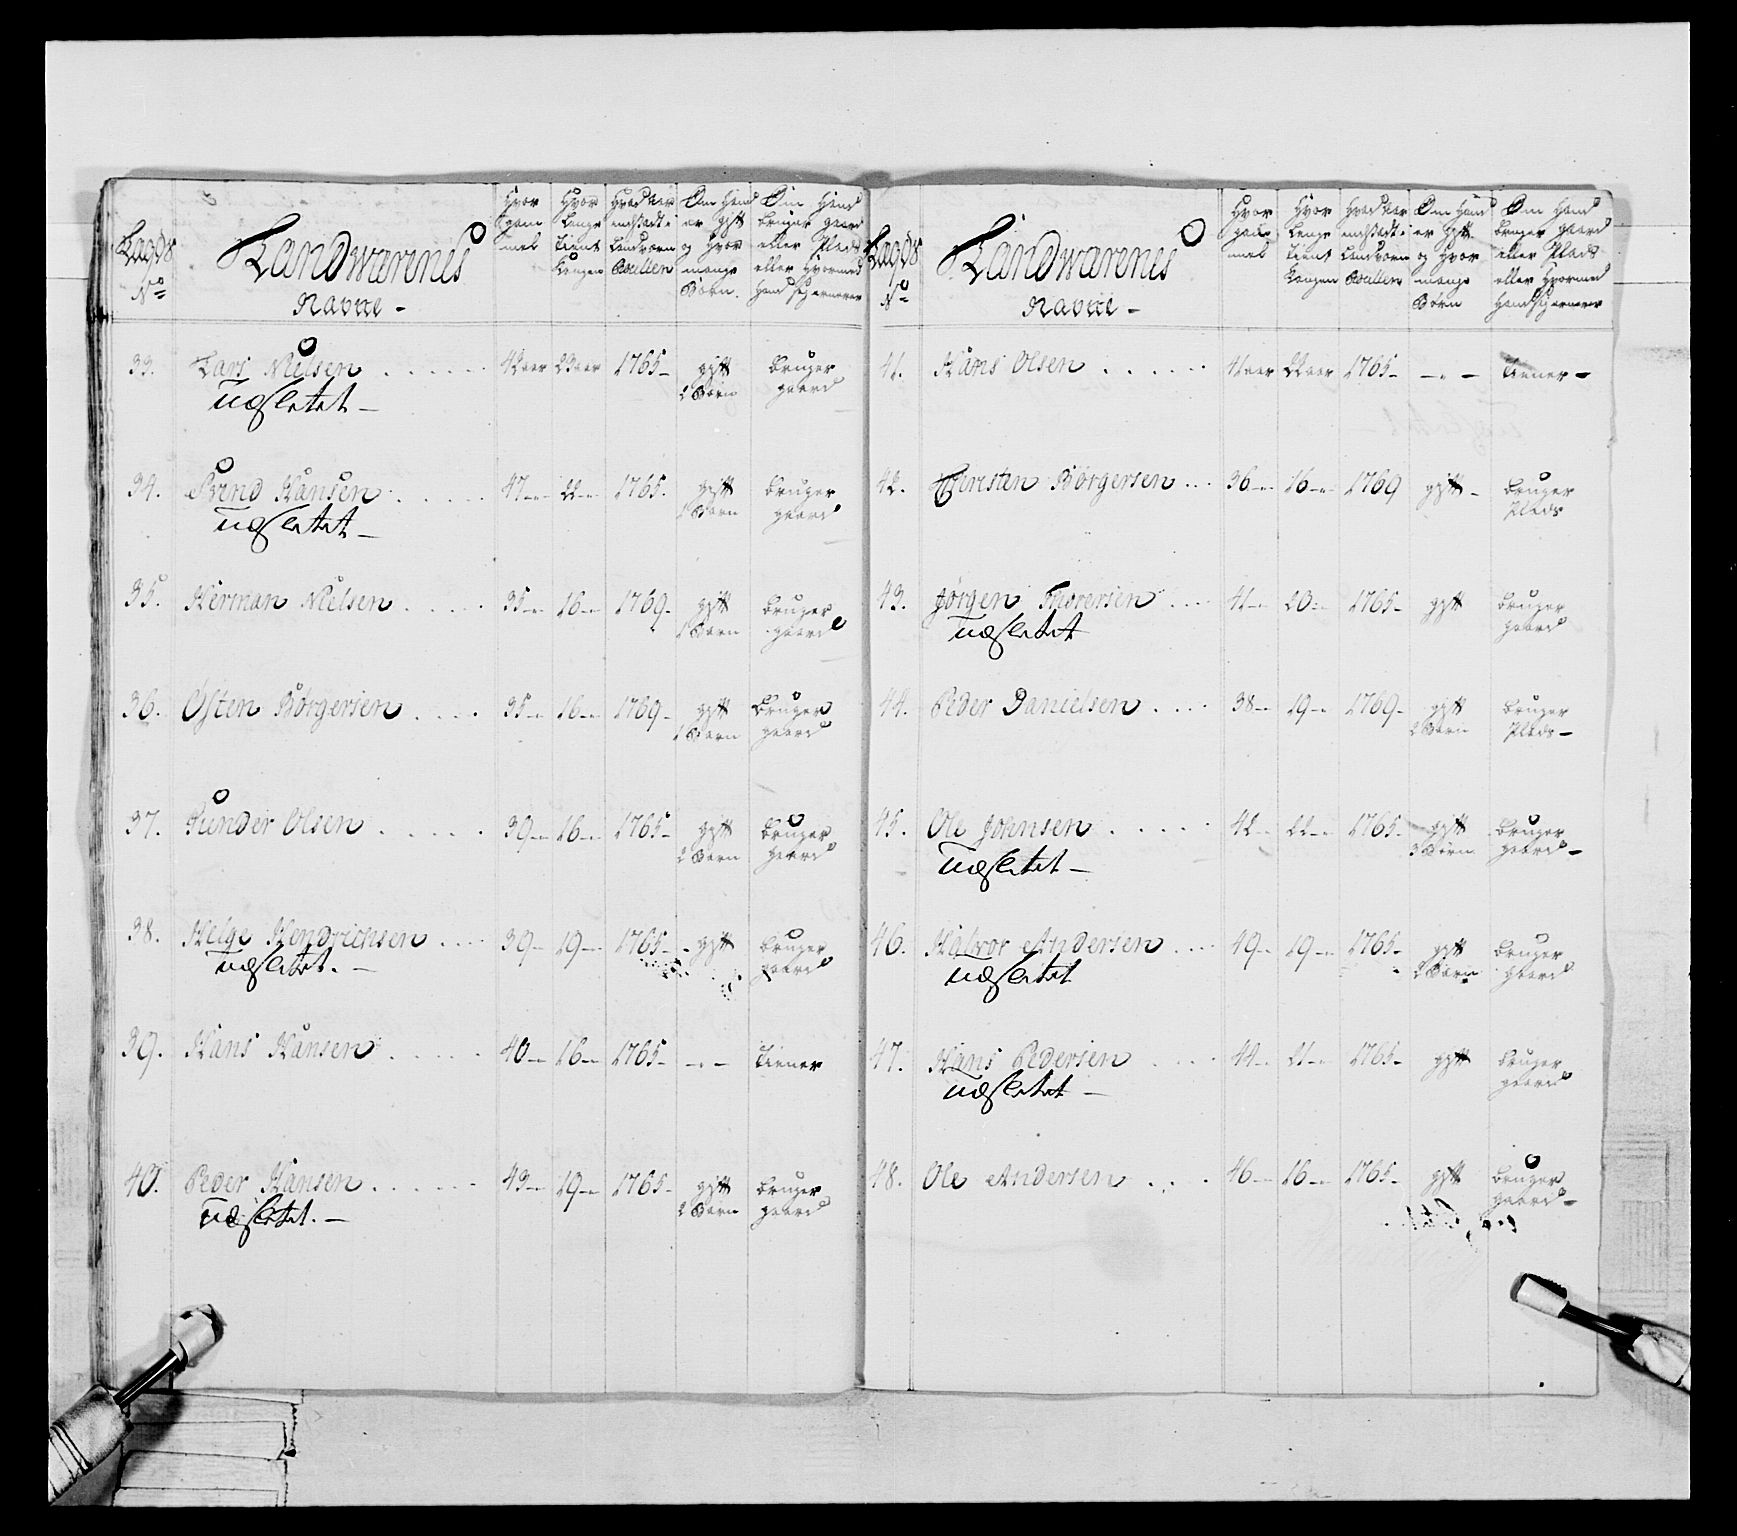 Lagds No
Landwærnes
Navne -
Hvor gammel
Hvor Lenge Tient Kongen
Hvad Aar endstædt i Landværn Rullen
Om Hand er gift og Hvor mange Børn.
Om Hand bruger gaard eller Plads eller Hvormed Hand sig ernerer
33. Lars Nielsen . . . . . . 42 aar 23 aar 1765 - gift 2 Børn bruger gaard
Udslætet -
34. Svend Hansen . . . . . 47 - 22 - 1765. gift 1 Barn bruger gaard
Udslætet -
35. Herman Nielsen . . . . . 35 - 16 - 1769. gift 1 Barn bruger gaard
36. Østen Börgersen . . . . 35 - 16 - 1769 - gift 1 Barn bruger gaard
37. Gunder Olsen . . . . . 39 - 16 - 1765 - gift 2 Børn bruger gaard
38. Helge Hendrichsen . . . 39 - 19 - 1765 - gift bruger gaard
Udslætet. -
39. Hans Hansen . . . . . 40 - 16 - 1765 - - " - Tiener
40. Peder Hansen . . . . . . 43 - 19 - 1765 - gift 2 Børn bruger gaard
Udslætet. -
Lagds No
Landwærnes
Navne -
Hvor gammel
Hvor Lenge Tient Kongen
Hvad Aar endstædt i Landværn Rullen
Om Hand er gift og Hvor mange Børn
Om Hand bruger gaard eller Plads eller Hvormed Hand sig ernerer
41. Hans Olsen . . . . . . 41 aar 22 aar 1765 - - " - Tiener -
42. Tersten Börgersen . . . 36 - 16 - 1769 gift - bruger Plads
43. Jørgen Thorersen . . . 41 - 20 - 1765 - gift bruger gaard
Udslætet
44. Peder Danielsen . . . . 38 - 19 - 1769 - gift 2 Børn bruger Plads -
45. Ole Johnsen . . . . . 42 - 22 - 1765 - gift 3 Børn bruger gaard -
Udslætet -
46. Halvor Andersen . . . 49 - 19 - 1765 - gift 2 Børn bruger gaard
Udslætet
47. Hans Pedersen . . . . 44 - 21 - 1765 - gift bruger gaard
Udslætet -
48. Ole Andersen . . . . 46 - 16 - 1765 - gift bruger gaard -